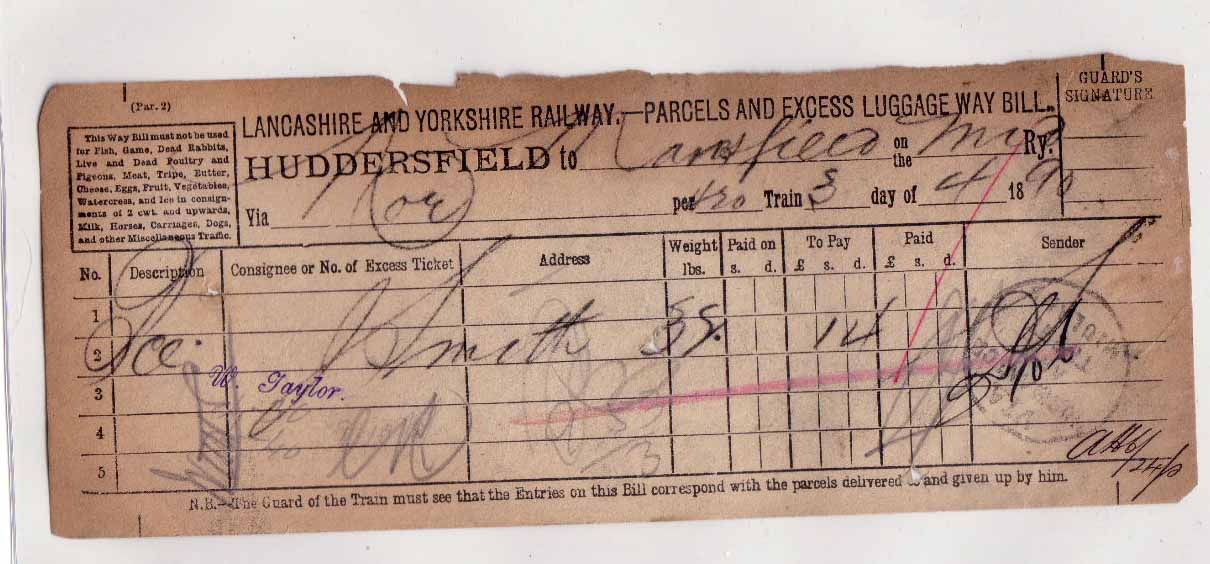 (Par. 2)
LANCASHIRE AND YORKSHIRE RAILWAY.—PARCELS AND EXCESS LUGGAGE WAY BILL.
GUARD'S
SIGNATURE
This Way Bill must not be used
for Fish, Game, Dead Rabbits,
Live and Dead Poultry and
Pigeons, Meat, Tripe, Butter,
Cheese, Eggs, Fruit, Vegetables,
Watercress, and Ice in consign-
ments of 2 cwt. and upwards,
Milk, Horses, Carriages, Dogs,
and other Miscellaneous Traffic.
HUDDERSFIELD to Mansfield on the Mid Ry.
Via per 420 Train 3 day of 4 1890
No. Description Consignee or No. of Excess Ticket Address Weight lbs. Paid on s. d. To Pay £ s. d. Paid £ s. d. Sender
1
2 Smith 39. 14
3 W. Taylor.
4
5
N.B.—The Guard of the Train must see that the Entries on this Bill correspond with the parcels delivered to and given up by him.